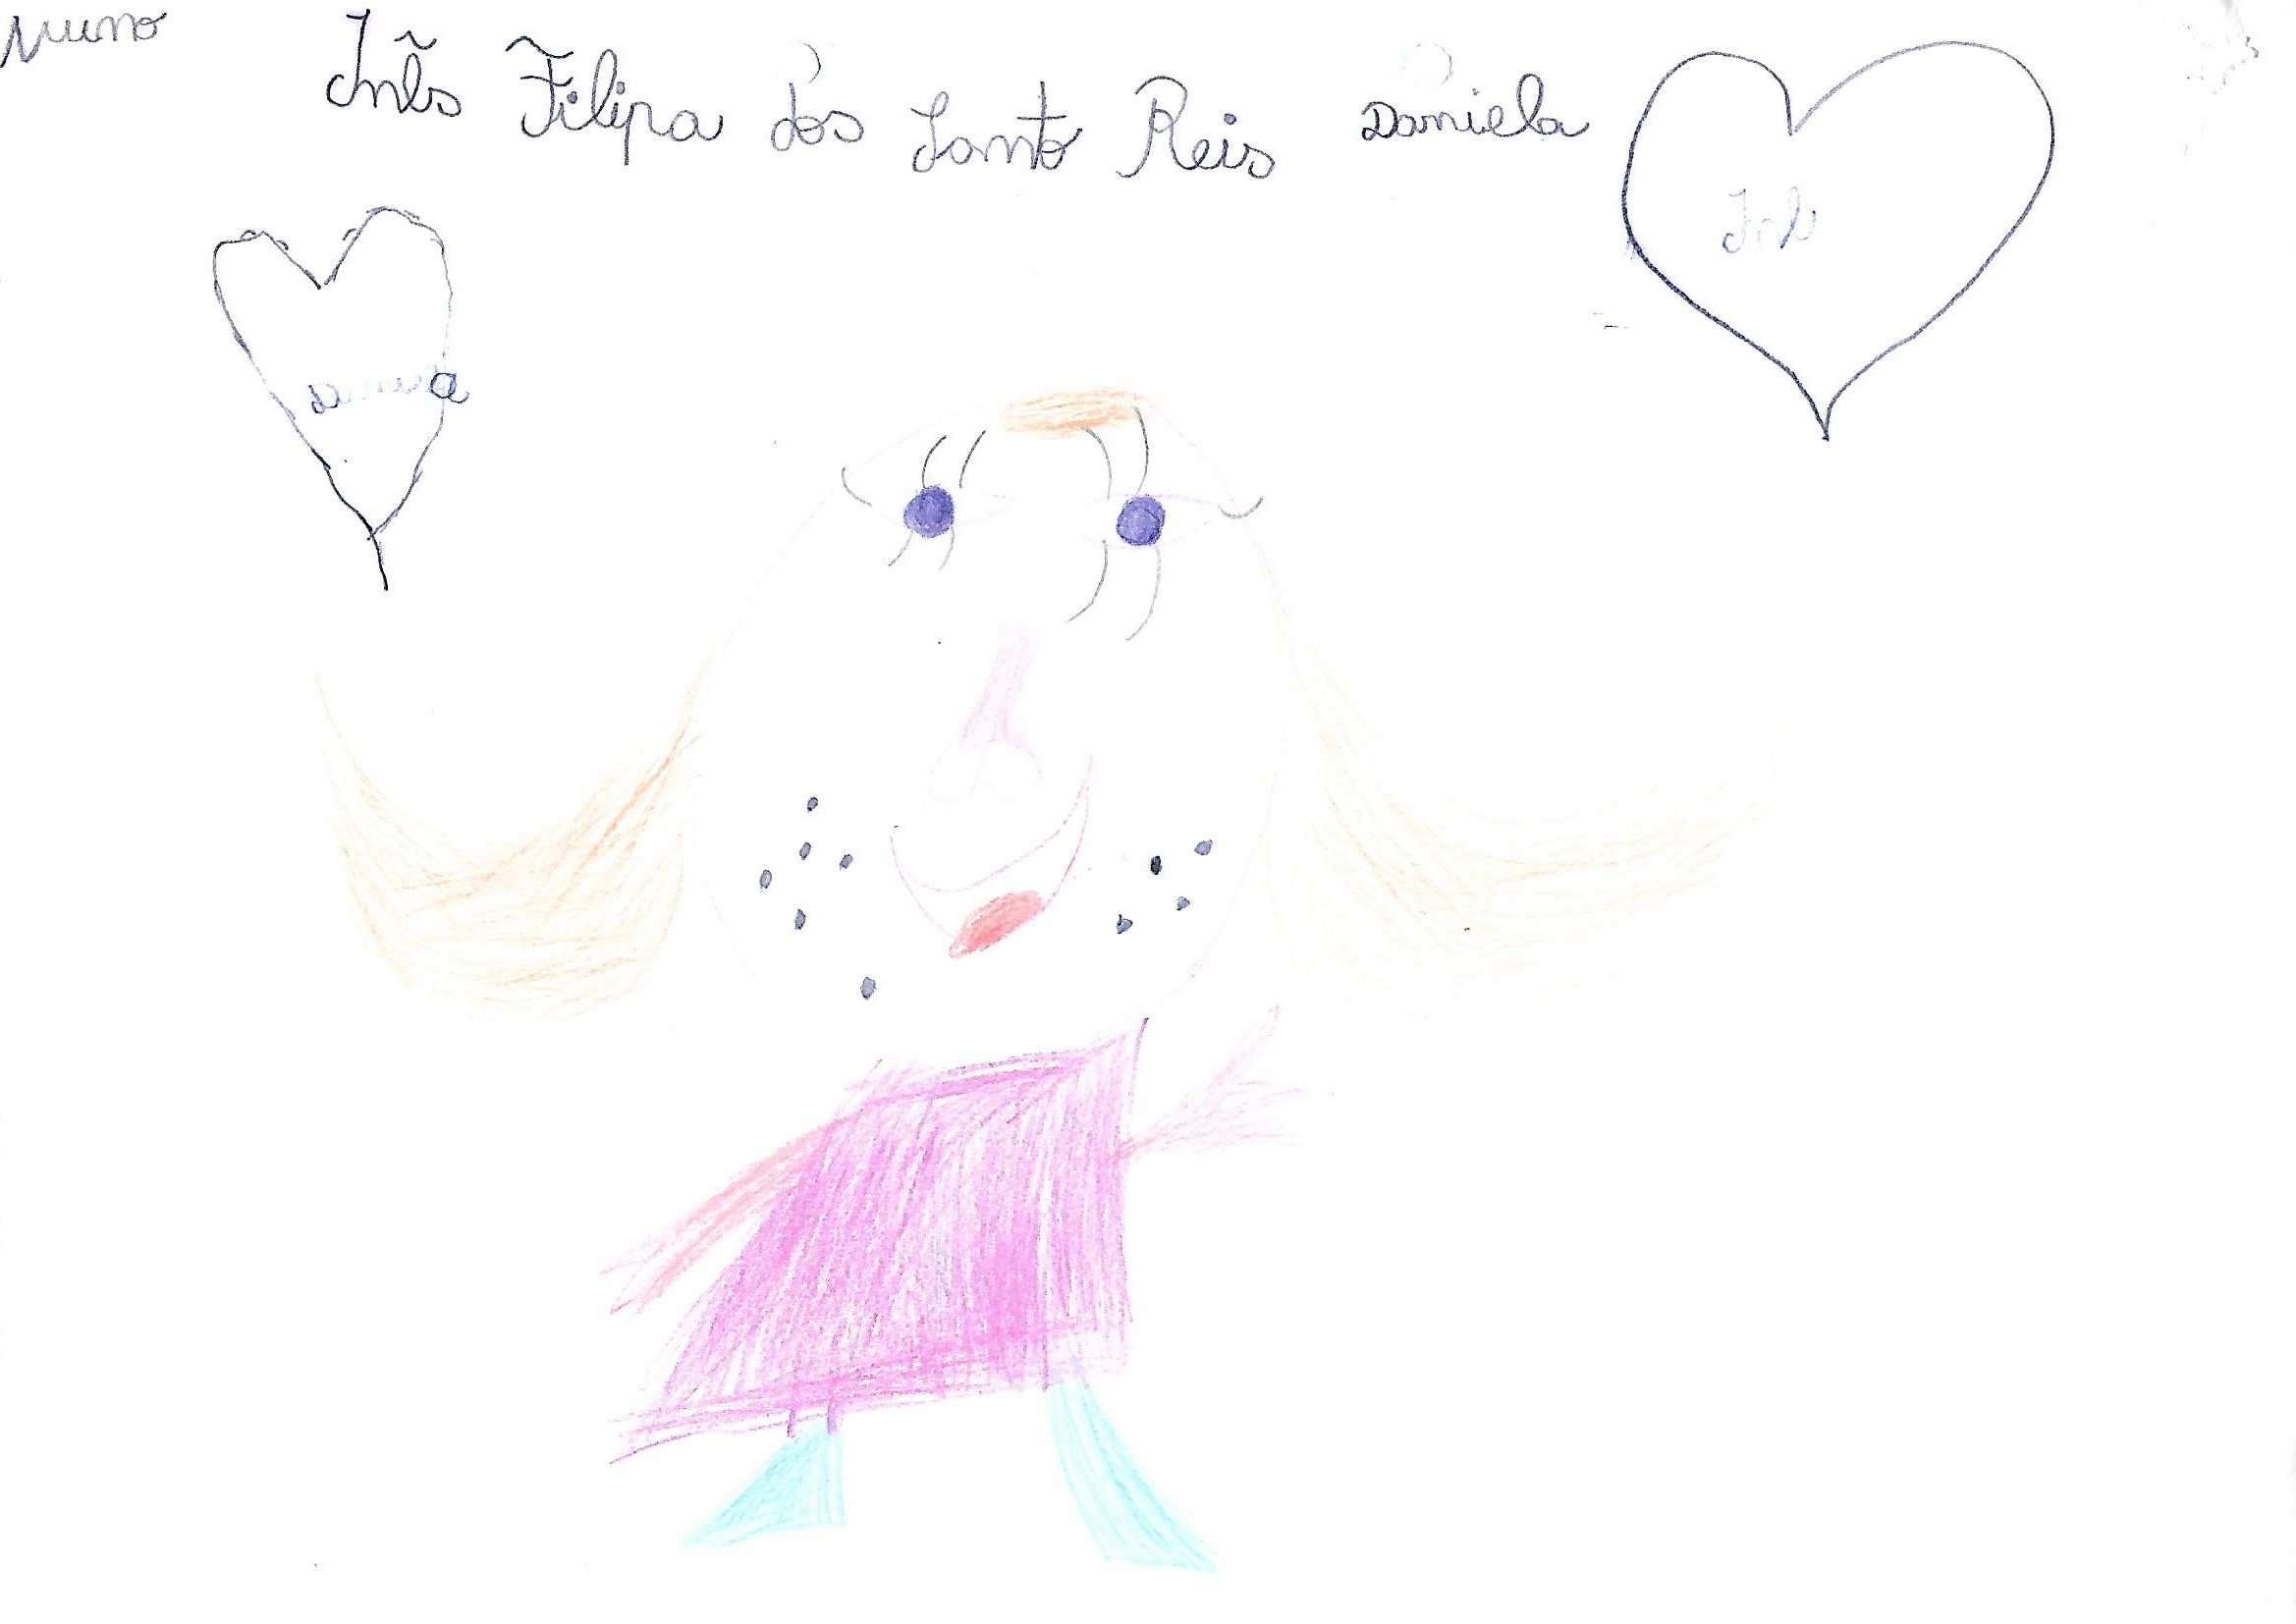 Nuno
Inês Filipa dos Santo Reis Daniela
Inês
Daniela